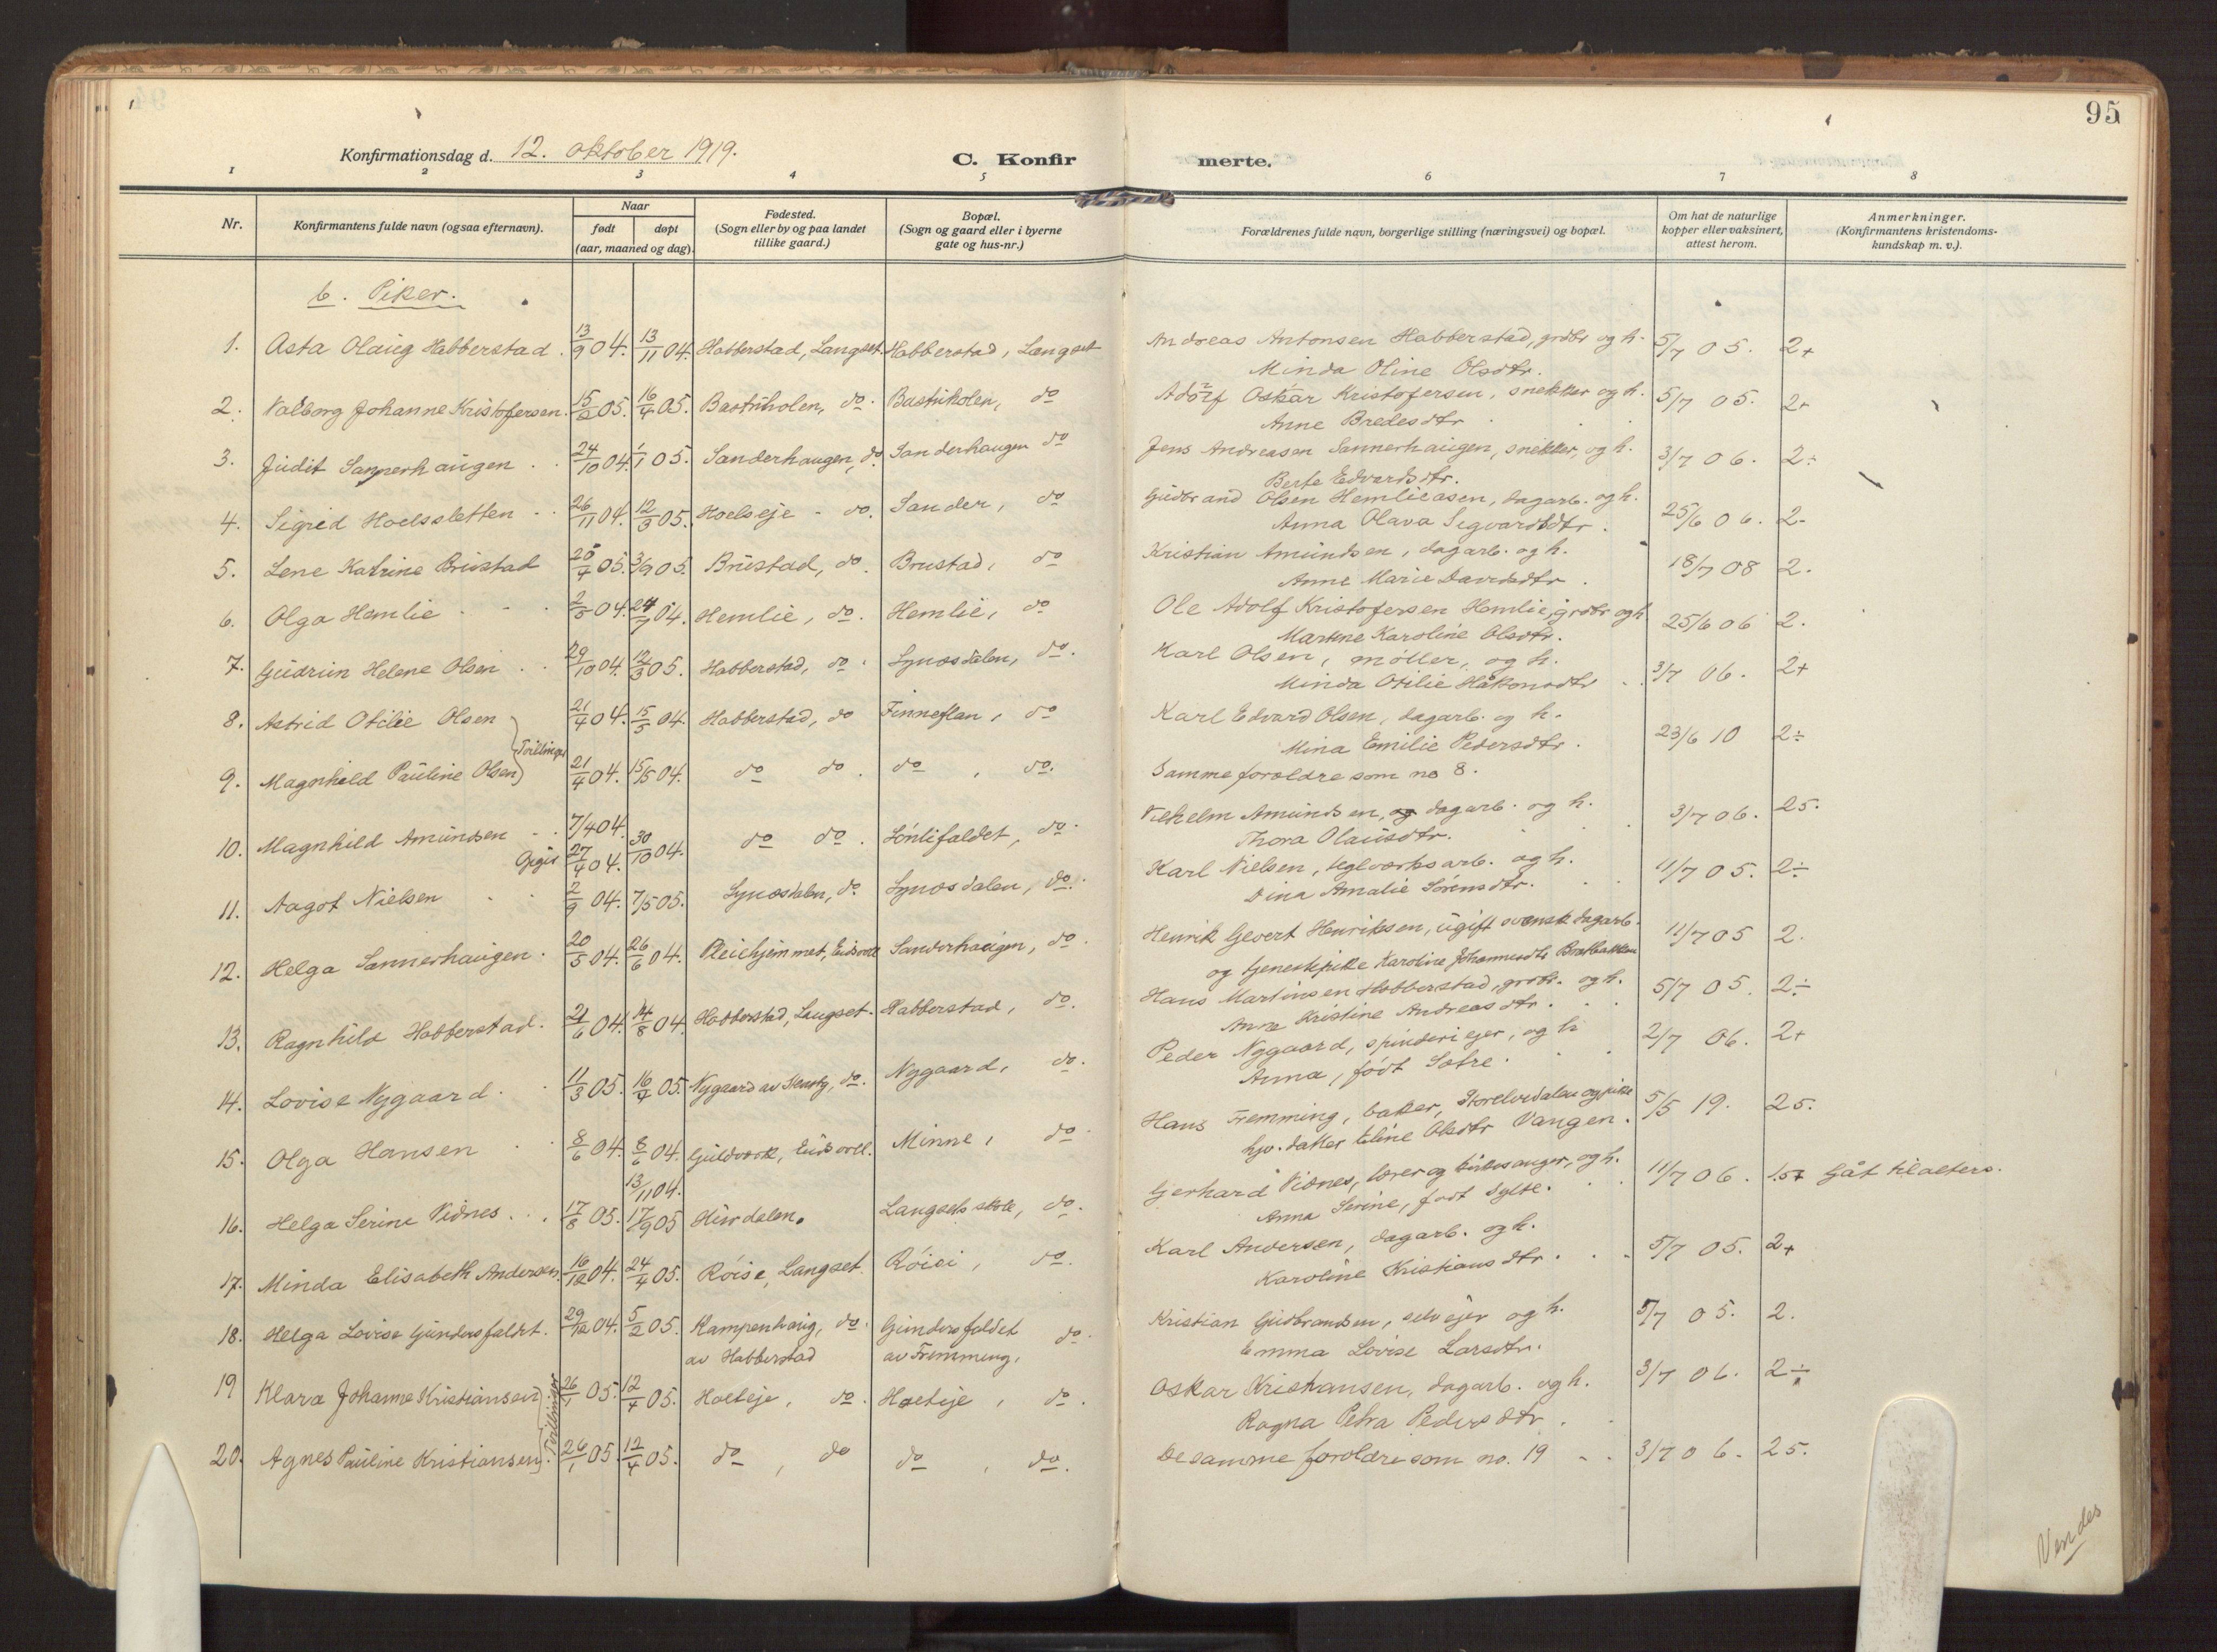 95
Konfirmationsdag d. 12. oktober 1919.
C. Konfirmerte.
1 2 3 4 5 6 7 8
Nr.
Konfirmantens fulde navn (ogsaa efternavn).
Naar
født døpt
(aar, maaned og dag).
Fødested.
(Sogn eller by og paa landet
tillike gaard.)
Bopæl.
(Sogn og gaard eller i byerne
gate og hus-nr.)
Forældrenes fulde navn, borgerlige stilling (næringsvei) og bopæl.
Om hat de naturlige
kopper eller vaksinert,
attest herom.
Anmerkninger.
(Konfirmantens kristendoms-
kundskap m. v.).
b. Piker.
1. Asta Olaug Habberstad. 13/9 04. 13/11 04. Habberstad, Langset. Habberstad, Langset Andreas Antonsen Habberstad, grdbr og h. 5/7 05. 2+
Minda Oline Olsdtr.
2. Valborg Johanne Kristofersen. 15/2 05. 16/4 05. Bastuholen, do. Bastuholen, do Adolf Oskar Kristofersen, snekker og h. 5/7 05. 2+
Anne Bredesdtr
3. Judit Sannerhaugen . . 24/10 04. 1/1 05. Sanderhaugen, do. Sanderhaugen do Jens Andreasen Sannerhaugen, snekker, og h. 3/7 06. 2÷
Berte Edvardsdtr.
4. Sigrid Hoelssletten . . 26/11 04. 12/3 05. Hoelseje - do. Sander, do Gudbrand Olsen Hemlieåsen, dagarb. og h. 25/6 06. 2-
Anna Olava Segvardsdtr.
5. Lene Katrine Brustad 20/4 05. 3/9 05. Brustad, do. Brustad, do Kristian Amundsen, dagarb. og h. 18/7 08 2.
Anne Marie Davidsdtr.
6. Olga Hemlie 2/5 04. 24/7 04. Hemlie, do. Hemlie, do Ole Adolf Kristofersen Hemlie, grdbr og h 25/6 06 2.
Martine Karoline Olsdtr.
7. Gudrun Helene Olsen . . 29/10 04. 12/3 05. Habberstad, do. Lynæsdalen, do. Karl Olsen, møller, og h. 3/7 06. 2+
Minda Otilie Håkonsdtr
8. Astrid Otilie Olsen 21/4 04. 15/5 04. Habberstad, do Finneflan, do Karl Edvard Olsen, dagarb. og h. 23/6 10 2÷
Tvillinger
Mina Emilie Pedersdtr.
9. Magnhild Pauline Olsen 21/4 04. 15/5 04. do do. do, do. Samme forældre som no 8.
10. Magnhild Amundsen . . 7/4 04. 30/10 04. do do. Lónlifaldet, do. Vilhelm Amundsen, og dagarb. og h. 3/7 06. 25.
27/4 04.
Thora Olausdtr.
11. Aagot Nielsen 2/9 04. 7/5 05. Lynæsdalen, do. Lynæsdalen, do. Karl Nielsen, teglværksarb. og h. 11/7 05. 2÷
Dina Amalie Sörensdtr.
12. Helga Sannerhaugen. 20/5 04. 26/6 04. Pleiehjemmet, Eidsvoll Sanderhaugen, do. Henrik Gevert Henriksen, ugift svensk dagarb. 11/7 05 2.
og tjenestepike Karoline Johannesdtr
13. Ragnhild Habberstad. 21/6 04. 14/8 04. Habberstad, Langset. Habberstad, do. Hans Martinsen Habberstad, grdbr. og h. 5/7 05. 2÷
Anne Kristine Andreasdtr.
14. Lovise Nygaard. 11/3 05. 16/4 05. Nygaard av, do. Nygaard, do. Peder Nygaard, spinderiejer, og h 2/7 06. 2+
Anna, født Sætre.
15. Olga Hansen 8/6 04. 8/6 04. Guldværk, Eidsvoll. Minne, do. Hans Fremming, baker, Storelvedalen og pike 5/5 19. 25.
13/11 04.
hjv. datter Eline Olsdtr Vangen.
16. Helga Serine Vidnes . . . 17/8 05. 17/9 05 Hurdalen. Langseth skole, do. Gerhard Vidnes, lærer og kirkesanger, og h. 11/7 06. 1.5+ Gåt til alters.
Anna Serine, født Sylte.
17. Minda Elisabeth Andersen. 16/12 04. 24/4 05. Röise, Langset. Röisi, do. Karl Andersen, dagarb. og h. 5/7 05. 2+
Karoline Kristiansdtr.
18. Helga Lovise Gundersfaldet. 29/12 04. 5/2 05. Kampenhaug, do. Gundersfaldet do. Kristian Gudbrandsen, selvejer og h. 5/7 05. 2.
av Habberstad av Fremming,
Emma Lovise Larsdtr.
19 Klara Johanne Kristiansen 26/1 05. 12/4 05. Hoelseje, do. Hoelseje, do. Oskar Kristiansen, dagarb. og h. 3/7 06. 2÷
Tvillinger
Ragna Petra Pedersdtr.
20. Agnes Pauline Kristiansen 26/1 05. 12/4 05. do, do do, do. De samme forældre som no. 19 3/7 06. 25.
Vendes